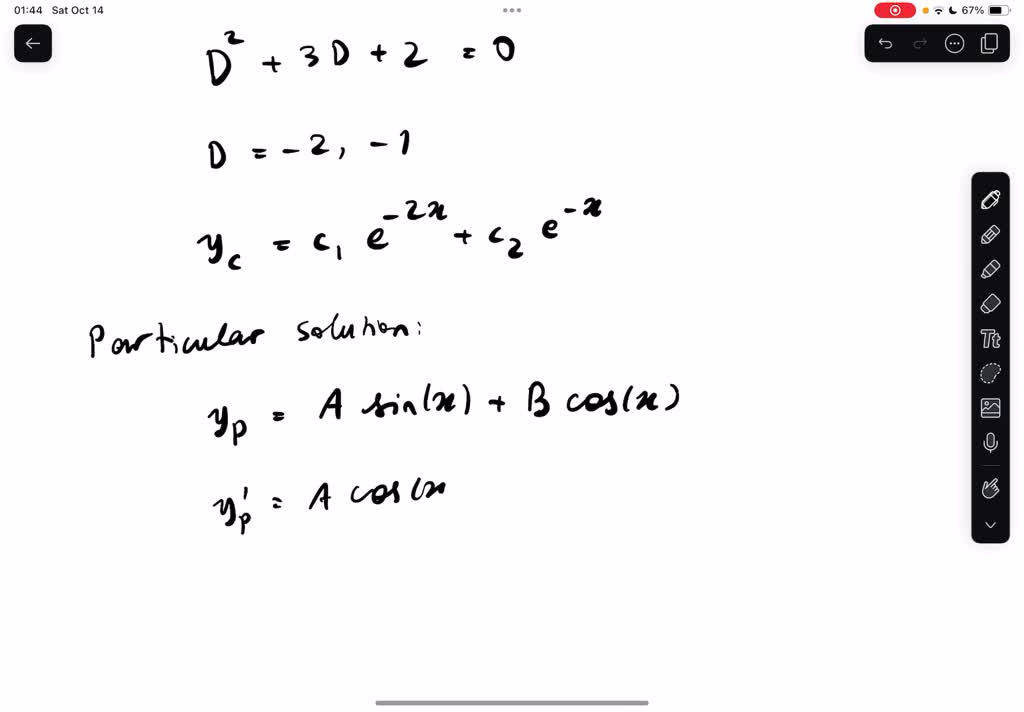 01:44 Sat Oct 14
67%
D² + 3D + 2 = 0
D = -2, -1
y_c = c₁ e^{-2x} + c₂ e^{-x}
Particular solution:
y_p = A sin(x) + B cos(x)
y_p' = A cos(x
Tt